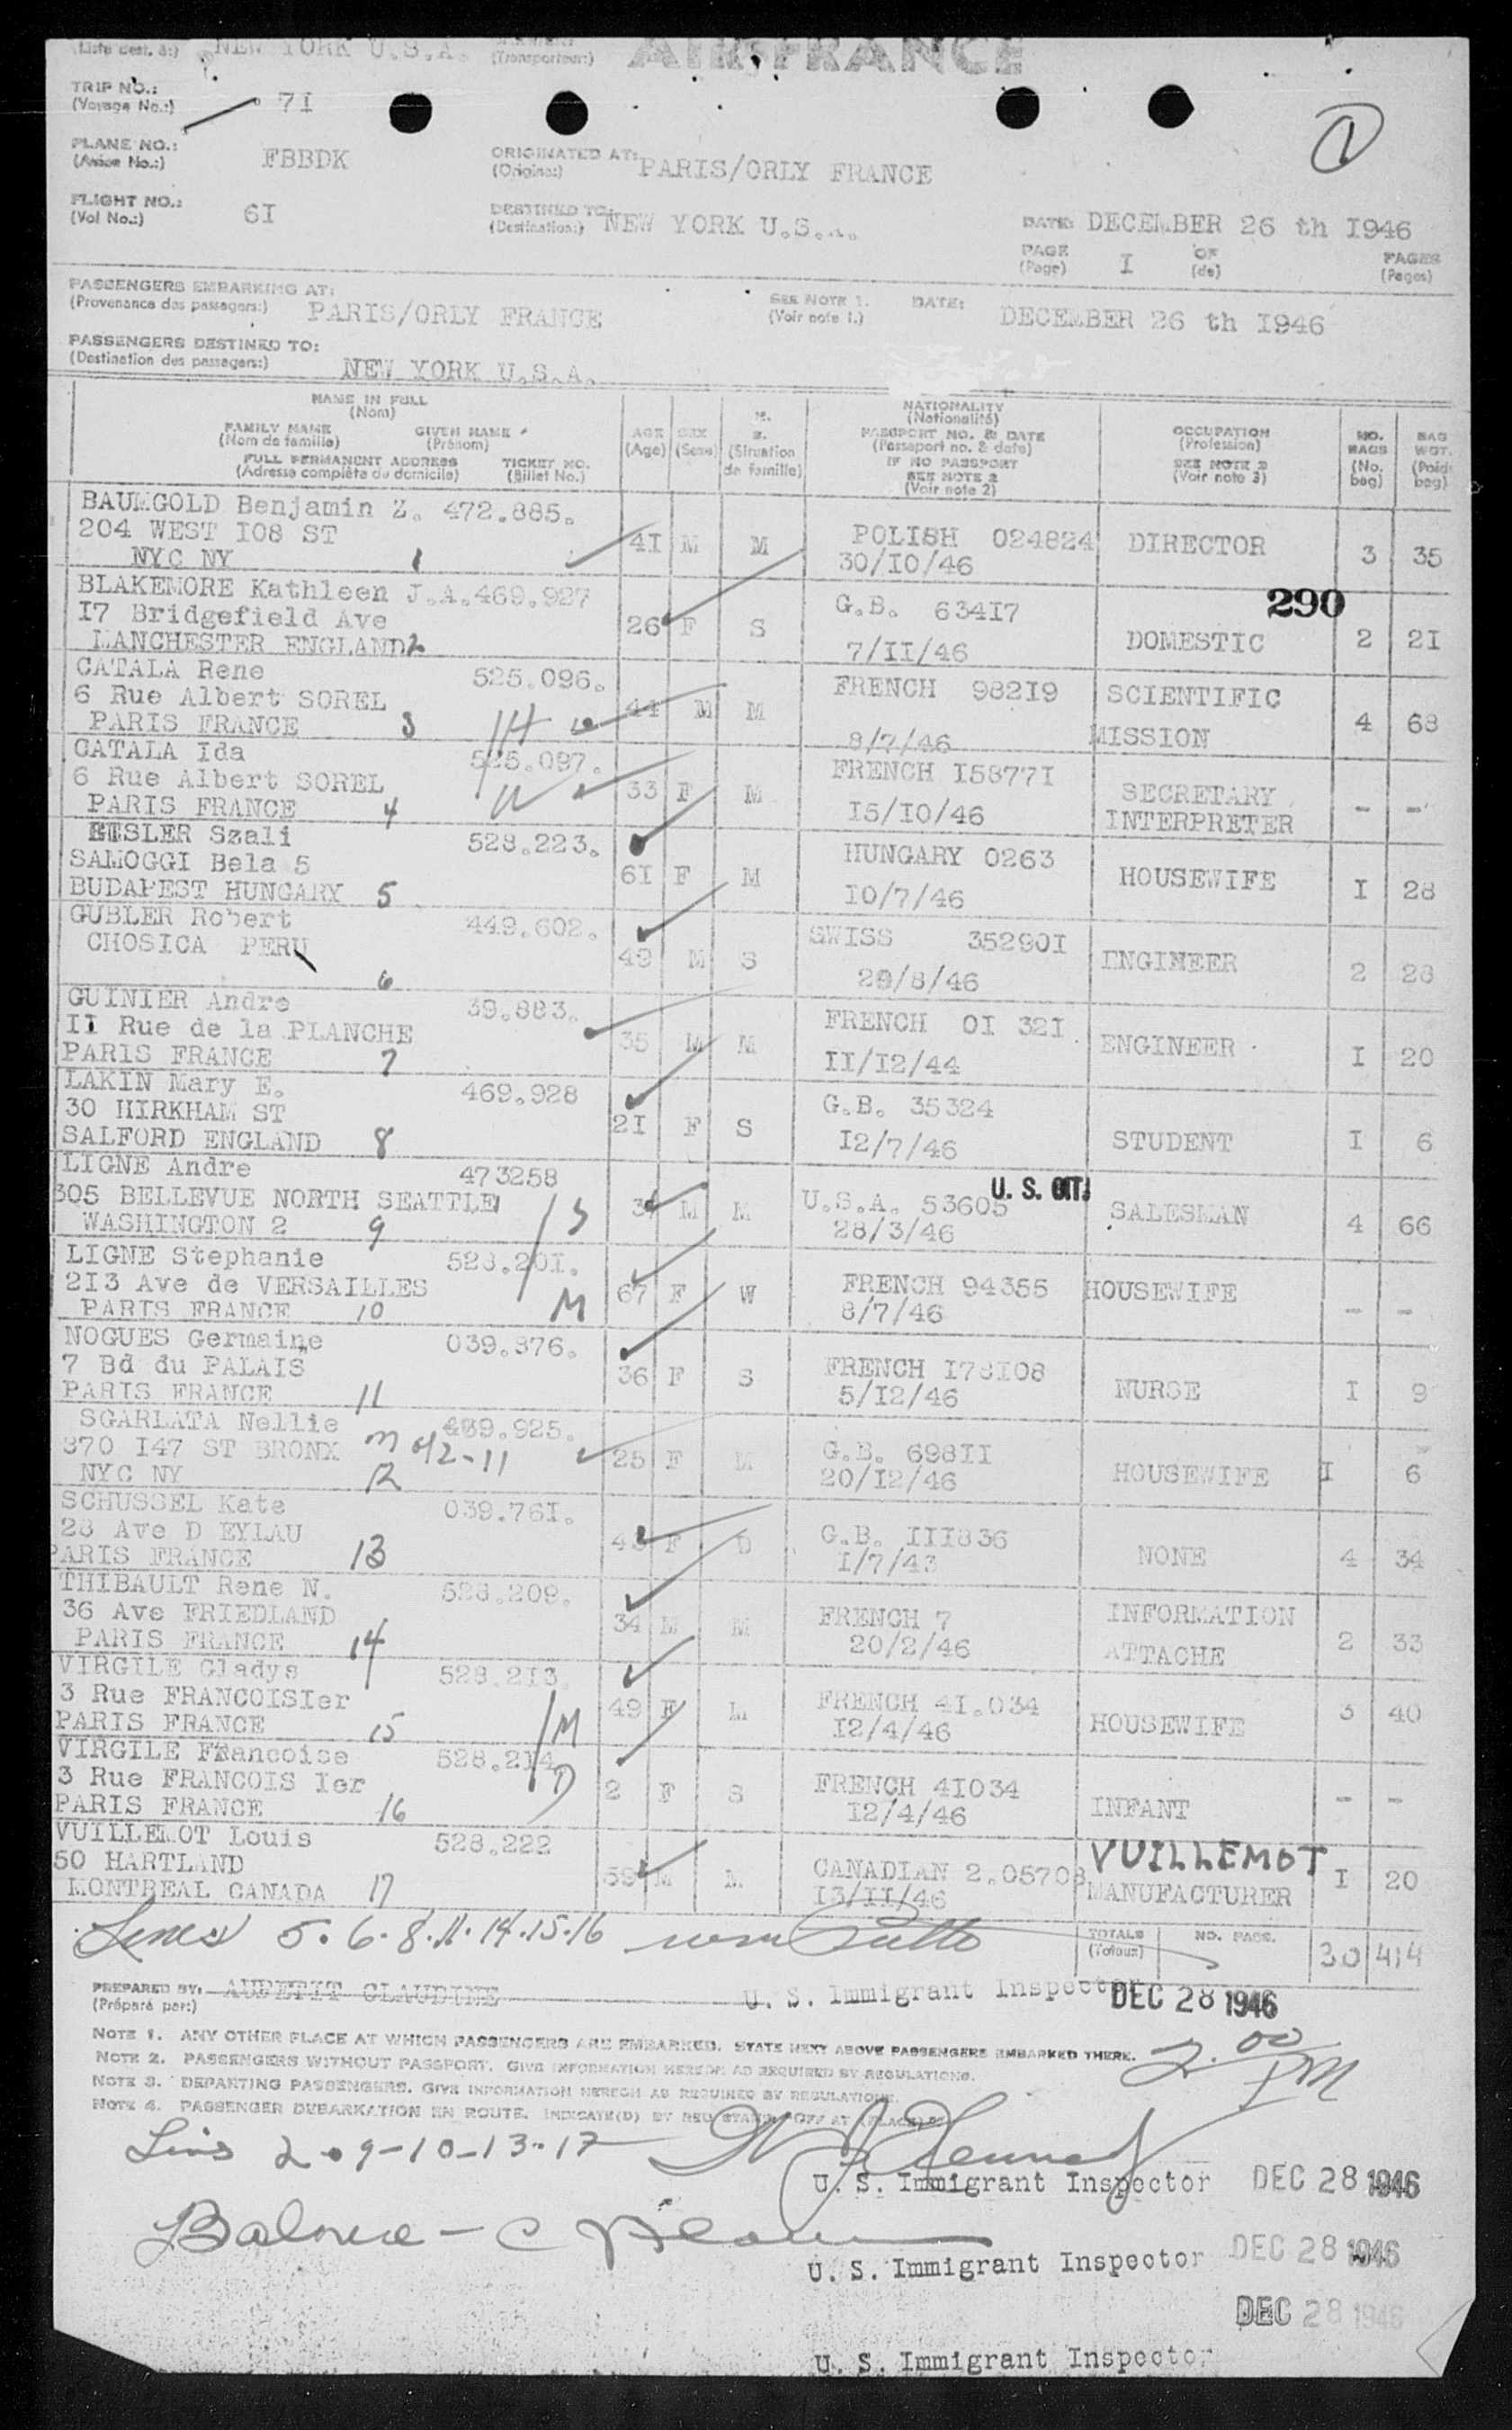 (Liste dest. à:) NEW YORK U.S.A. (Transporteur:) AIR FRANCE
TRIP NO.:
(Voyage No.:) 7I
PLANE NO.:
(Avion No.:) FBBDK
ORIGINATED AT:
(Origine:) PARIS/ORLY FRANCE
FLIGHT NO.:
(Vol No.:) 6I
DESTINED TO:
(Destination:) NEW YORK U.S.A.
DATE: DECEMBER 26 th I946
PAGE
(Page) I OF
(de) PAGES
(Pages)
PASSENGERS EMBARKING AT:
(Provenance des passagers:) PARIS/ORLY FRANCE
SEE NOTE 1.
(Voir note 1.) DATE: DECEMBER 26 th I946
PASSENGERS DESTINED TO:
(Destination des passagers:) NEW YORK U.S.A.
NAME IN FULL
(Nom)
FAMILY NAME GIVEN NAME
(Nom de famille) (Prénom)
FULL PERMANENT ADDRESS TICKET NO.
(Adresse complète du domicile) (Billet No.)
AGE
(Age)
SEX
(Sexe)
M.
S.
(Situation
de famille)
NATIONALITY
(Nationalité)
PASSPORT NO. & DATE
(Passeport no. & date)
IF NO PASSPORT
SEE NOTE 2
(Voir note 2)
OCCUPATION
(Profession)
SEE NOTE 3
(Voir note 3)
NO.
BAGS
(No.
bag)
BAG
WGT.
(Poids
bag)
BAUMGOLD Benjamin Z. 472.885.
204 WEST I08 ST
NYC NY 1
4I M M POLISH 024824 DIRECTOR 3 35
30/I0/46
BLAKEMORE Kathleen J.A.469.927
I7 Bridgefield Ave
MANCHESTER ENGLAND 2
26 F S G.B. 634I7 290
7/II/46 DOMESTIC 2 2I
CATALA Rene 525.096.
6 Rue Albert SOREL
PARIS FRANCE 3 H
44 M M FRENCH 982I9 SCIENTIFIC
8/7/46 MISSION 4 68
CATALA Ida 525.097.
6 Rue Albert SOREL
PARIS FRANCE 4 W
33 F M FRENCH I5877I SECRETARY
I5/I0/46 INTERPRETER - -
EISLER Szali 528.223.
SAMOGGI Bela 5
BUDAPEST HUNGARY 5
6I F M HUNGARY 0263 HOUSEWIFE I 28
I0/7/46
GUBLER Robert 449.602.
CHOSICA PERU
6
49 M S SWISS 35290I ENGINEER 2 28
29/8/46
GUINIER Andre 39.883.
II Rue de la PLANCHE
PARIS FRANCE 7
35 M M FRENCH OI 32I ENGINEER I 20
II/I2/44
LAKIN Mary E. 469.928
30 HIRKHAM ST
SALFORD ENGLAND 8
2I F S G.B. 35324
I2/7/46 STUDENT I 6
LIGNE Andre 473258
305 BELLEVUE NORTH SEATTLE
WASHINGTON 2 9 S
M M U.S.A. 53605 U. S. CIT. SALESMAN 4 66
28/3/46
LIGNE Stephanie 528.20I.
2I3 Ave de VERSAILLES
PARIS FRANCE 10 M
67 F W FRENCH 94355 HOUSEWIFE - -
8/7/46
NOGUES Germaine 039.876.
7 Bd du PALAIS
PARIS FRANCE 11
36 F S FRENCH I78I08 NURSE I 9
5/I2/46
SGARLATA Nellie 469.925.
870 I47 ST BRONX
NYC NY 12
25 F M G.B. 698II HOUSEWIFE I 6
20/I2/46
SCHUSSEL Kate 039.76I.
28 Ave D EYLAU
PARIS FRANCE 13
F D G.B. III836 NONE 4 34
I/7/43
THIBAULT Rene N. 528.209.
36 Ave FRIEDLAND
PARIS FRANCE 14
34 M M FRENCH 7 INFORMATION
20/2/46 ATTACHE 2 33
VIRGILE Gladys 528.2I3.
3 Rue FRANCOISIer
PARIS FRANCE 15 M
49 F M FRENCH 4I.034 HOUSEWIFE 3 40
I2/4/46
VIRGILE Francoise 528.2I4
3 Rue FRANCOIS Ier D
PARIS FRANCE 16
2 F S FRENCH 4I034 INFANT - -
I2/4/46
VUILLEMOT Louis 528.222
50 HARTLAND
MONTREAL CANADA 17
59 M M CANADIAN 2.05708 VUILLEMOT
I3/II/46 MANUFACTURER I 20
Lines 5. 6. 8. 11. 14. 15. 16
TOTALS
(Totaux) NO. PASS. 30 414
PREPARED BY: AUPETIT CLAUDINE
(Préparé par:)
U. S. Immigrant Inspector DEC 28 1946
NOTE 1. ANY OTHER PLACE AT WHICH PASSENGERS ARE EMBARKED. STATE NEXT ABOVE PASSENGERS EMBARKED THERE.
NOTE 2. PASSENGERS WITHOUT PASSPORT. GIVE INFORMATION HEREON AS REQUIRED BY REGULATIONS.
NOTE 3. DEPARTING PASSENGERS. GIVE INFORMATION HEREON AS REQUIRED BY REGULATIONS.
NOTE 4. PASSENGER DEBARKATION EN ROUTE. INDICATE(D) BY RED STAMP "OFF AT (PLACE)"
2.00 PM
Lines 2-9-10-13-17
U. S. Immigrant Inspector DEC 28 1946
Balance - C
U. S. Immigrant Inspector DEC 28 1946
DEC 28 1946
U. S. Immigrant Inspector